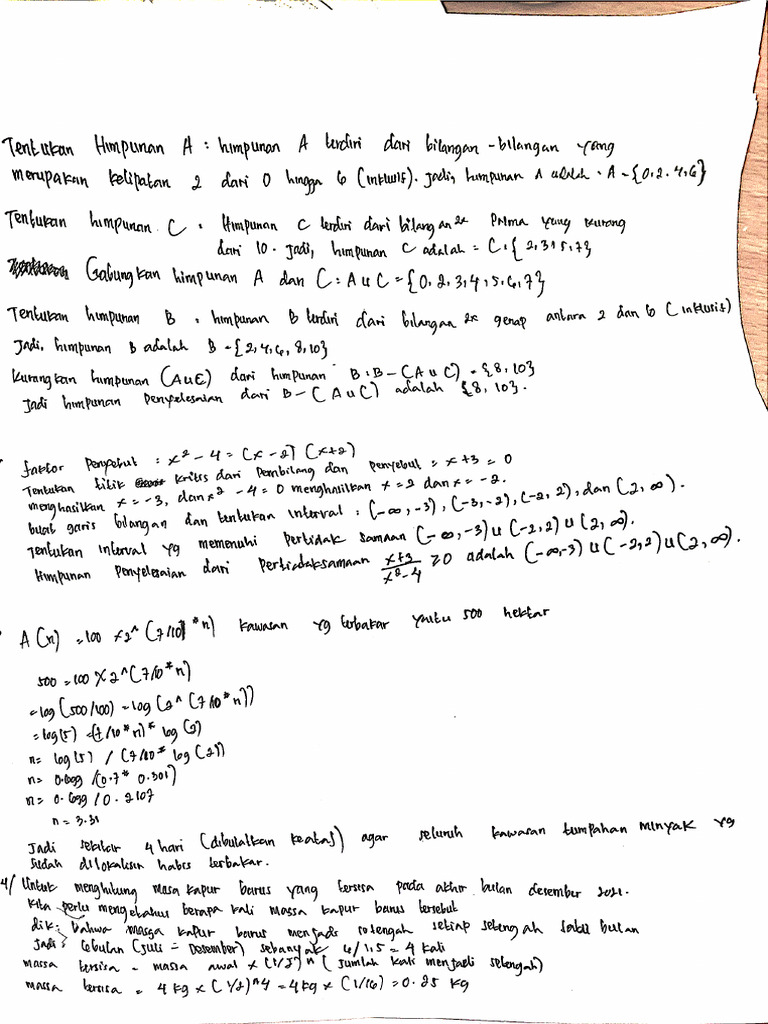 Tentukan Himpunan A : himpunan A terdiri dari bilangan-bilangan yang
merupakan kelipatan 2 dari 0 hingga 6 (inklusif). Jadi, himpunan A adalah : A = {0,2,4,6}
Tentukan himpunan C : Himpunan C terdiri dari bilangan 2x Prima yang kurang
dari 10. Jadi, himpunan C adalah = C = { 2,3,5,7}
Gabungkan himpunan A dan C : A u C = {0,2,3,4,5,6,7}
Tentukan himpunan B : himpunan B terdiri dari bilangan 2x genap antara 2 dan 6 (inklusif)
Jadi, himpunan B adalah B = {2,4,6,8,10}
Kurangkan himpunan (AuC) dari himpunan B : B - (AuC) = {8,10}
Jadi himpunan penyelesaian dari B - (AuC) adalah {8,10}.
faktor penyebut : x² - 4 = (x - 2) (x+2)
Tentukan titik kritis dari Pembilang dan penyebut = x+3 = 0
menghasilkan x = -3, dan x² - 4 = 0 menghasilkan x = 2 dan x = -2.
buat garis bilangan dan tentukan interval : (-∞,-3), (-3,-2), (-2,2), dan (2,∞).
Tentukan interval yg memenuhi Pertidak samaan (-∞,-3) u (-2,2) u (2,∞).
Himpunan Penyelesaian dari Pertidaksamaan x+3/x²-4 ≥0 adalah (-∞,-3) u (-2,2) u (2,∞).
A(n) = 100 x 2^ (7/10 * n) kawasan yg terbakar yaitu 500 hektar
500 = 100 x 2^ (7/10 * n)
= log (500/100) = log (2^ (7/10 * n))
= log(5) = (7/10 * n) * log (2)
n = log(5) / (7/10 * log (2))
n = 0.699 / (0.7 * 0.301)
n = 0.699 / 0.2107
n = 3.31
Jadi sekitar 4 hari (dibulatkan keatas) agar seluruh kawasan tumpahan minyak yg
sudah dilokalisir habis terbakar.
4/ Untuk menghitung masa kapur barus yang tersisa pada akhir bulan desember 2021.
kita perlu mengetahui berapa kali massa kapur barus tersebut
dik : bahwa massa kapur barus menjadi setengah setiap setengah satu bulan
Jadi : 6 bulan (Juli - Desember) sebanyak 6/1,5 = 4 kali
massa tersisa = massa awal x (1/2)^n (jumlah kali menjadi setengah)
massa tersisa = 4 kg x (1/2)^4 = 4 kg x (1/16) = 0.25 kg